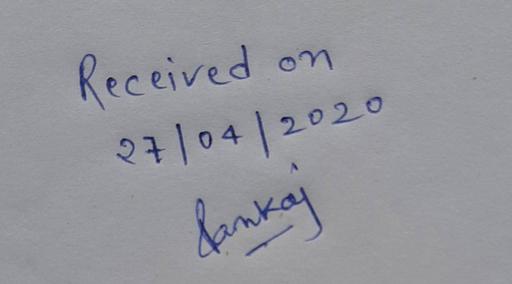 Received on
27/04/2020
Pankaj